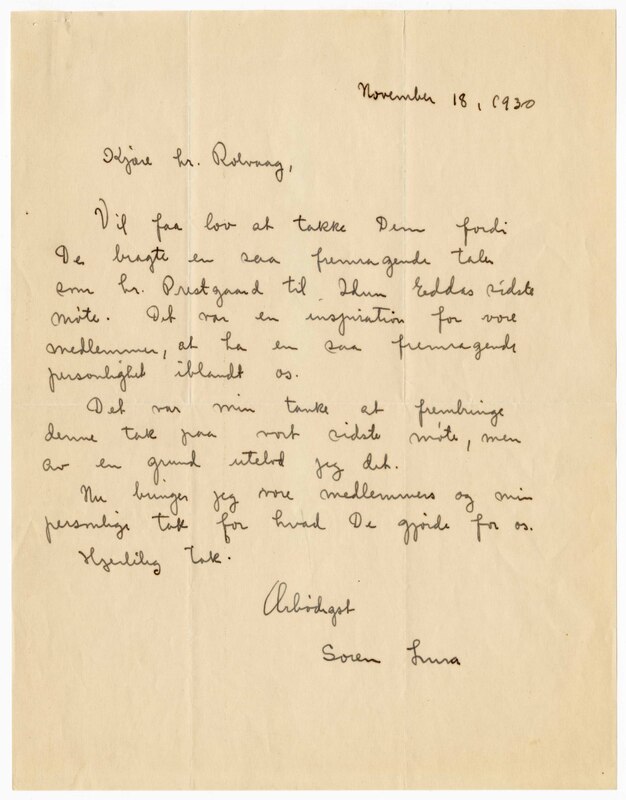 November 18, 1930
Kjære hr. Rolvaag,
Vil faa lov at takke Dem fordi
De bragte en saa fremragende taler
som hr. Prestgaard til Idun Eddas sidste
møte. Det var en inspiration for vore
medlemmer, at ha en saa fremragende
personlighet iblandt os.
Det var min tanke at frembringe
denne tak paa vort sidste møte, men
av en grund utelod jeg det.
Nu bringer jeg vore medlemmers og min
personlige tak for hvad De gjörde for os.
Hjertlig tak.
Ærbödigst
Soren